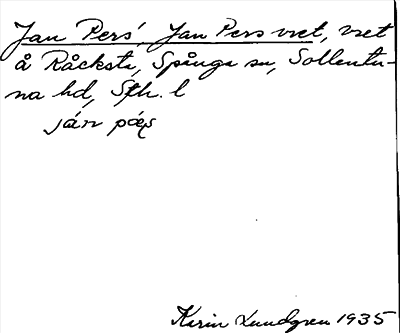 Jan Pers', Jan Pers vret, vret
å Råcksta, Spånga sn, Sollentu-
na hd, Sth. l
ján pæs
Karin Lundgren 1935